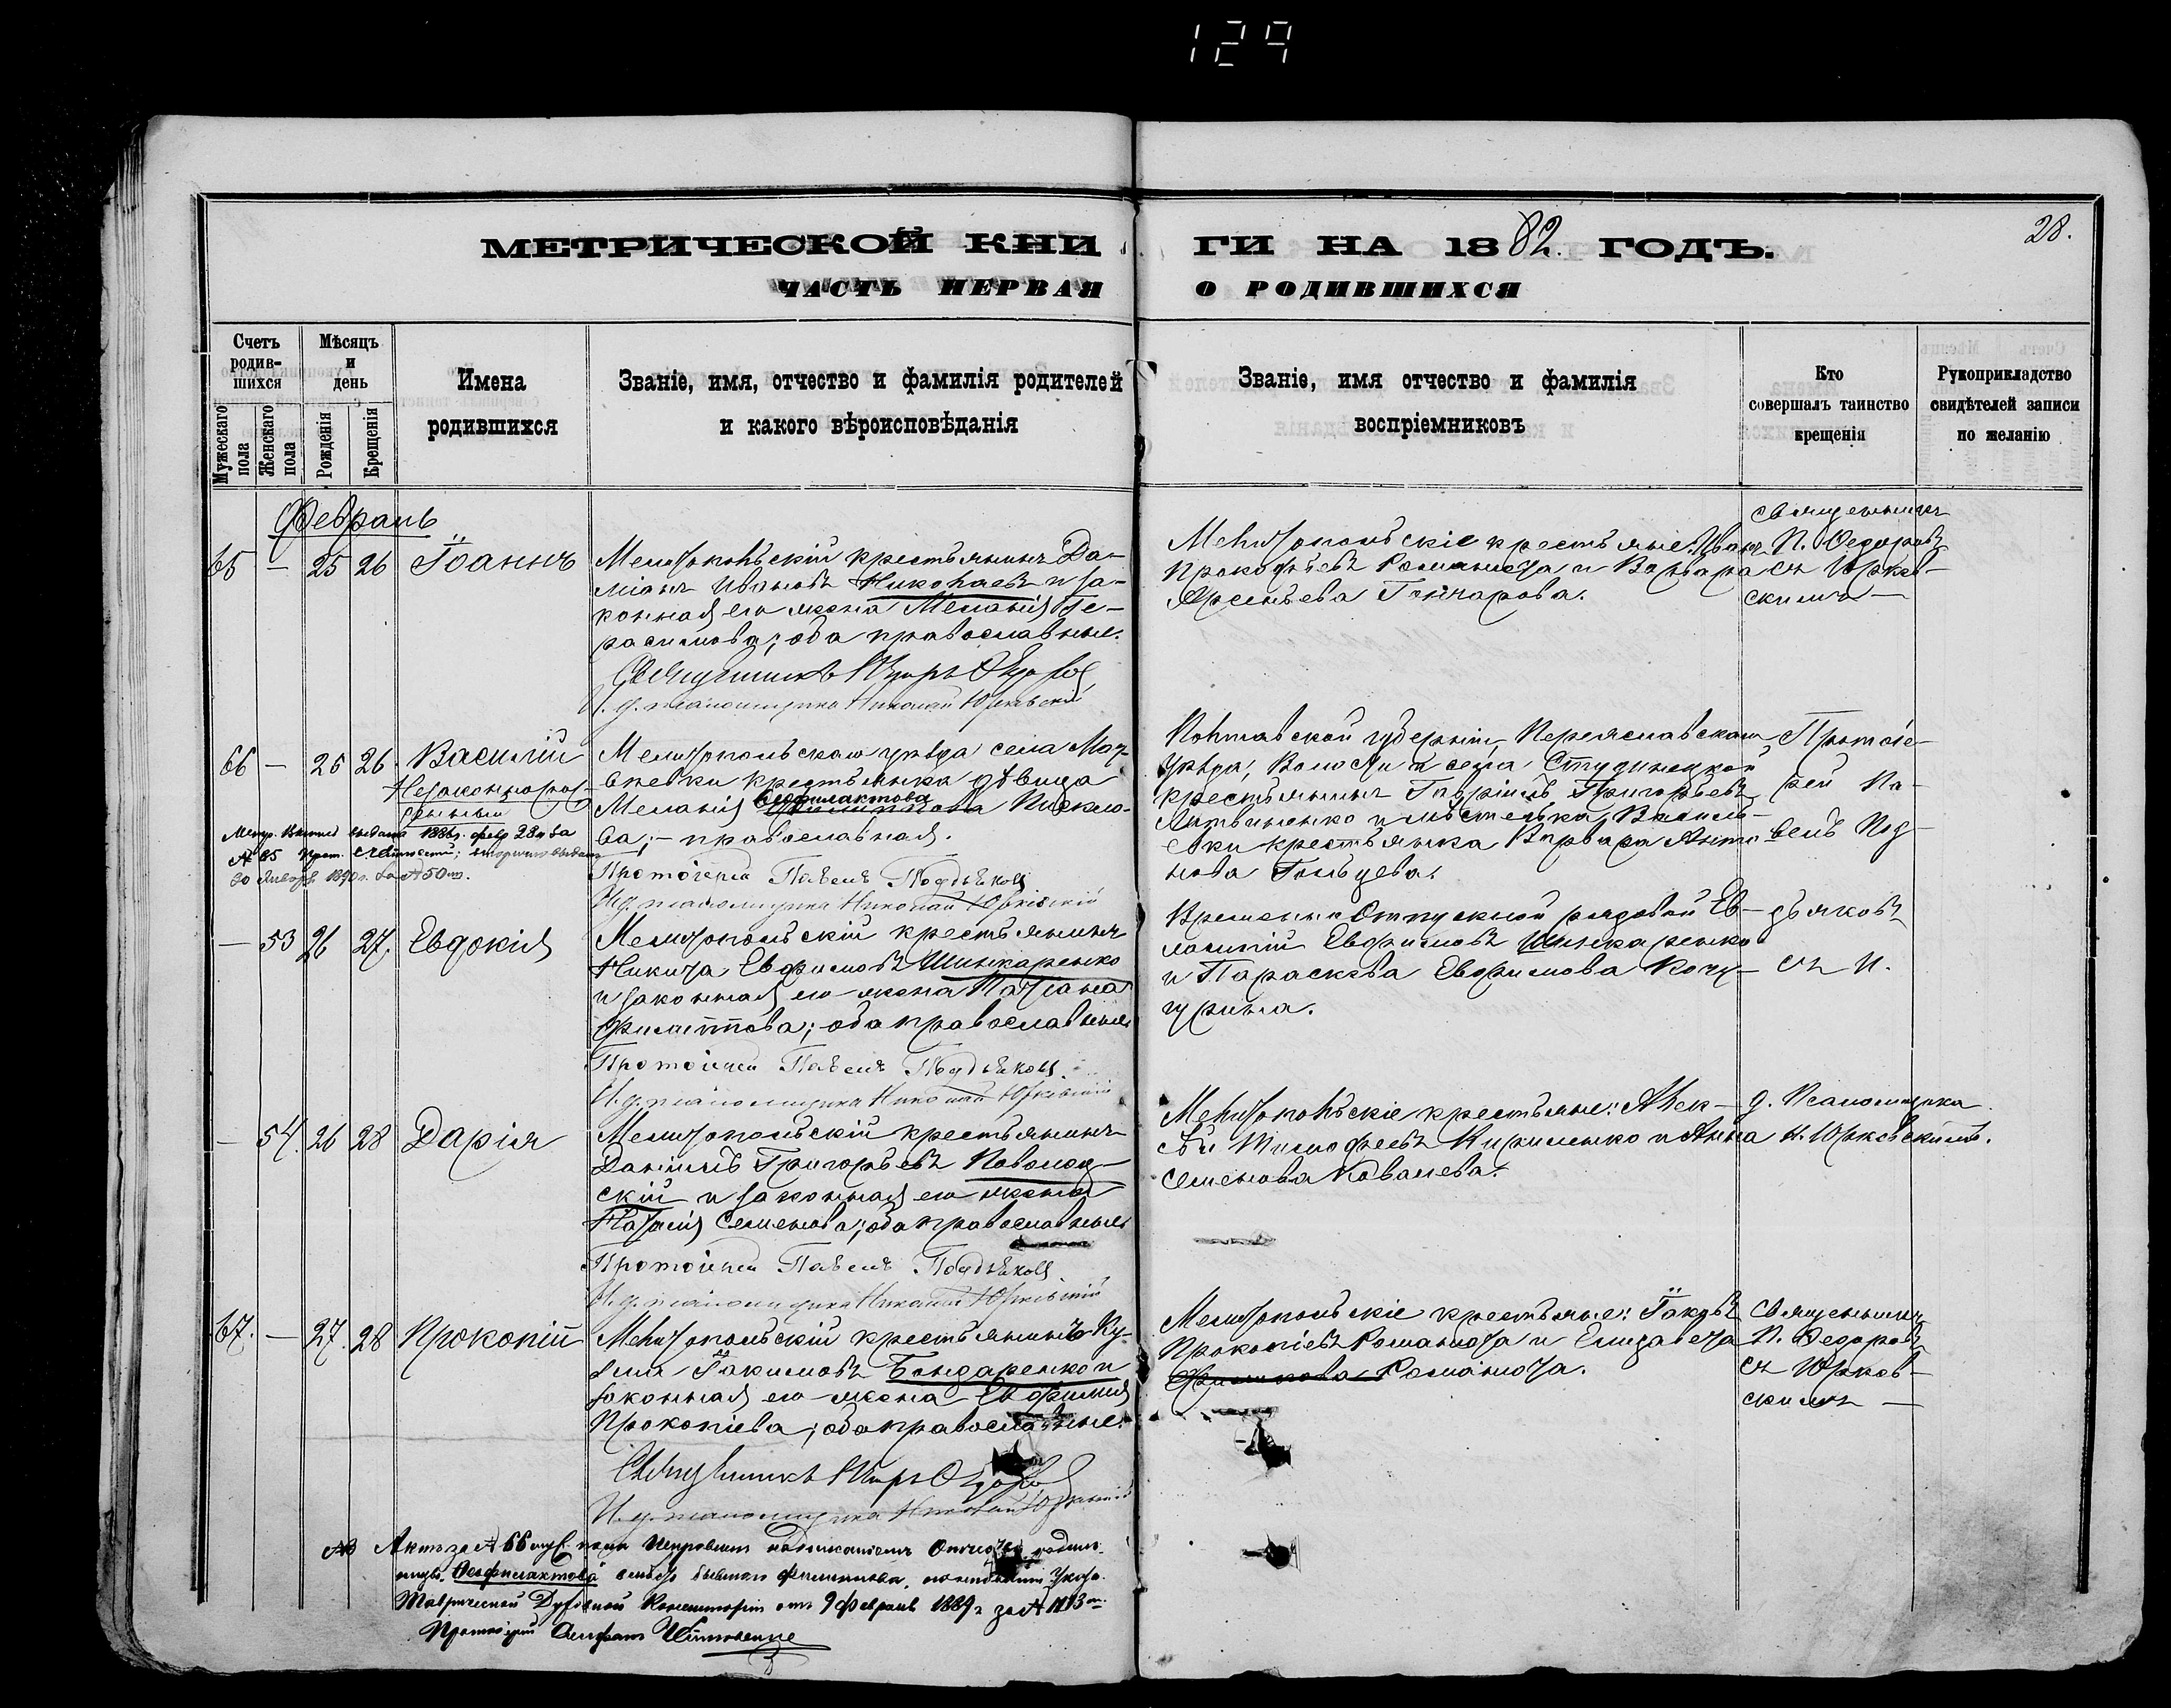 129
МЕТРИЧЕСКОЙ КНИ ГИ НА 1882. ГОДЪ.
28.
ЧАСТЬ ПЕРВАЯ О РОДИВШИХСЯ
Счетъ родив-шихся
Мужескаго пола
Женскаго пола
Мѣсяцъ и день
Рожденія
Крещенія
Имена родившихся
Званіе, имя, отчество и фамилія родителей
и какого вѣроисповѣданія
Званіе, имя отчество и фамилія
воспріемниковъ
Кто
совершалъ таинство
крещенія
Рукоприкладство
свидѣтелей записи
по желанію
Февраль
65 — 25 26 Іоаннъ
Мелитопольскій крестьянинъ Да-
міанъ Ивановъ Николаевъ и за-
конная его жена Меланія Ге-
расимова; оба православные.
Священникъ Петръ Ѳедоровъ
И. д. псаломщика Николай Юрковскій
Мелитопольскіе крестьяне: Иванъ
Прокофьевъ Романюта и Варвара
Арсеньева Гончарова.
Священникъ
П. Ѳедоровъ
съ Юрков-
скимъ —
66 — 25 26. Василій
Незаконнорож-
денный
Мелитопольскаго уѣзда села
крестьянка дѣвица
Меланія Ѳеофилактова
ва; — православная.
Протоіерей Павелъ Поддьяковъ
И. д. псаломщика Николай Юрковскій
Метр. выпись выдана 188 г. февр. 28 за
№ 85 вторично выдана
20 Января 1890 г. за № 50 м.
Полтавской губерніи, Переяславскаго
уѣзда, Волости и села Студенецкой
крестьянинъ Гавріилъ Григорьевъ
Литвиненко и
крестьянка Варвара Анто-
нова Гольцева.
Протоіе-
рей Па-
велъ Под-
дьяковъ
съ И.
д. Псаломщика
Н. Юрковскимъ.
— 53 26 27. Евдокія
Мелитопольскій крестьянинъ
Никита Евфимовъ Шинкаренко
и законная его жена Татіана
Филиппова; оба православные
Протоіерей Павелъ Поддьяковъ
И. д. псаломщика Николай Юрковскій
Временно Отпускной рядовой Ев-
Евфимовъ Шинкаренко
и Параскева Евфимова Кочу-
гурина.
— 54. 26 28 Дарія
Мелитопольскій крестьянинъ
Даніилъ Григорьевъ Поволоц-
скій и законная его жена
Наталія Семенова; оба православные
Протоіерей Павелъ Поддьяковъ
И. д. псаломщика Николай Юрковскій
Мелитопольскіе крестьяне: Алек-
сѣй Тимофеевъ Кириленко и Анна
Семенова Ковалева.
67. — 27. 28 Прокопій
Мелитопольскій крестьянинъ Ку-
зма Іакимовъ Бондаренко и
законная его жена Евфимія
Прокопіева; оба православные.
Священникъ Петръ Ѳедоровъ
И. д. псаломщика Николай Юрковскій
Мелитопольскіе крестьяне: Іаковъ
Прокопіевъ Романюта и Елизавета
Романюта.
Священникъ
П. Ѳедоровъ
съ Юрков-
скимъ —
Актъ за № 66 муж. пола
Ѳеофилактова вмѣсто бывшаго Филиппова,
Таврической Духовной Консисторіи отъ 9 Февраля 1889 г за № 1113 м.
Протоіерей